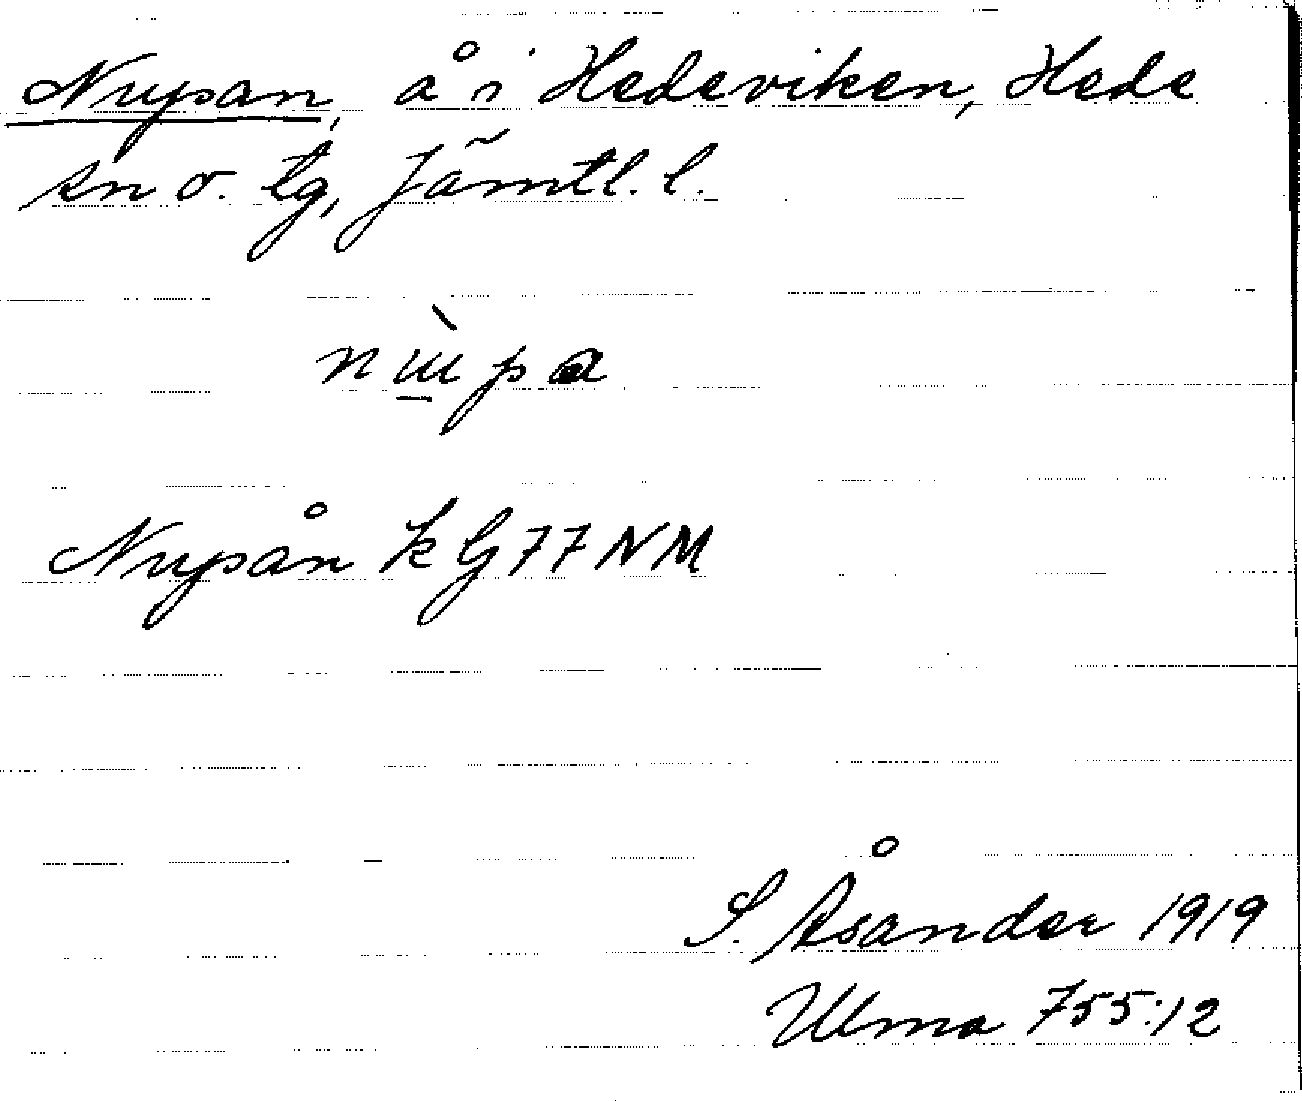 Nupan, å i Hedeviken, Hede
sn o. tg, Jämtl. l.
Nupån k G77NM
S. Åsander 1919
Ulma 755:12